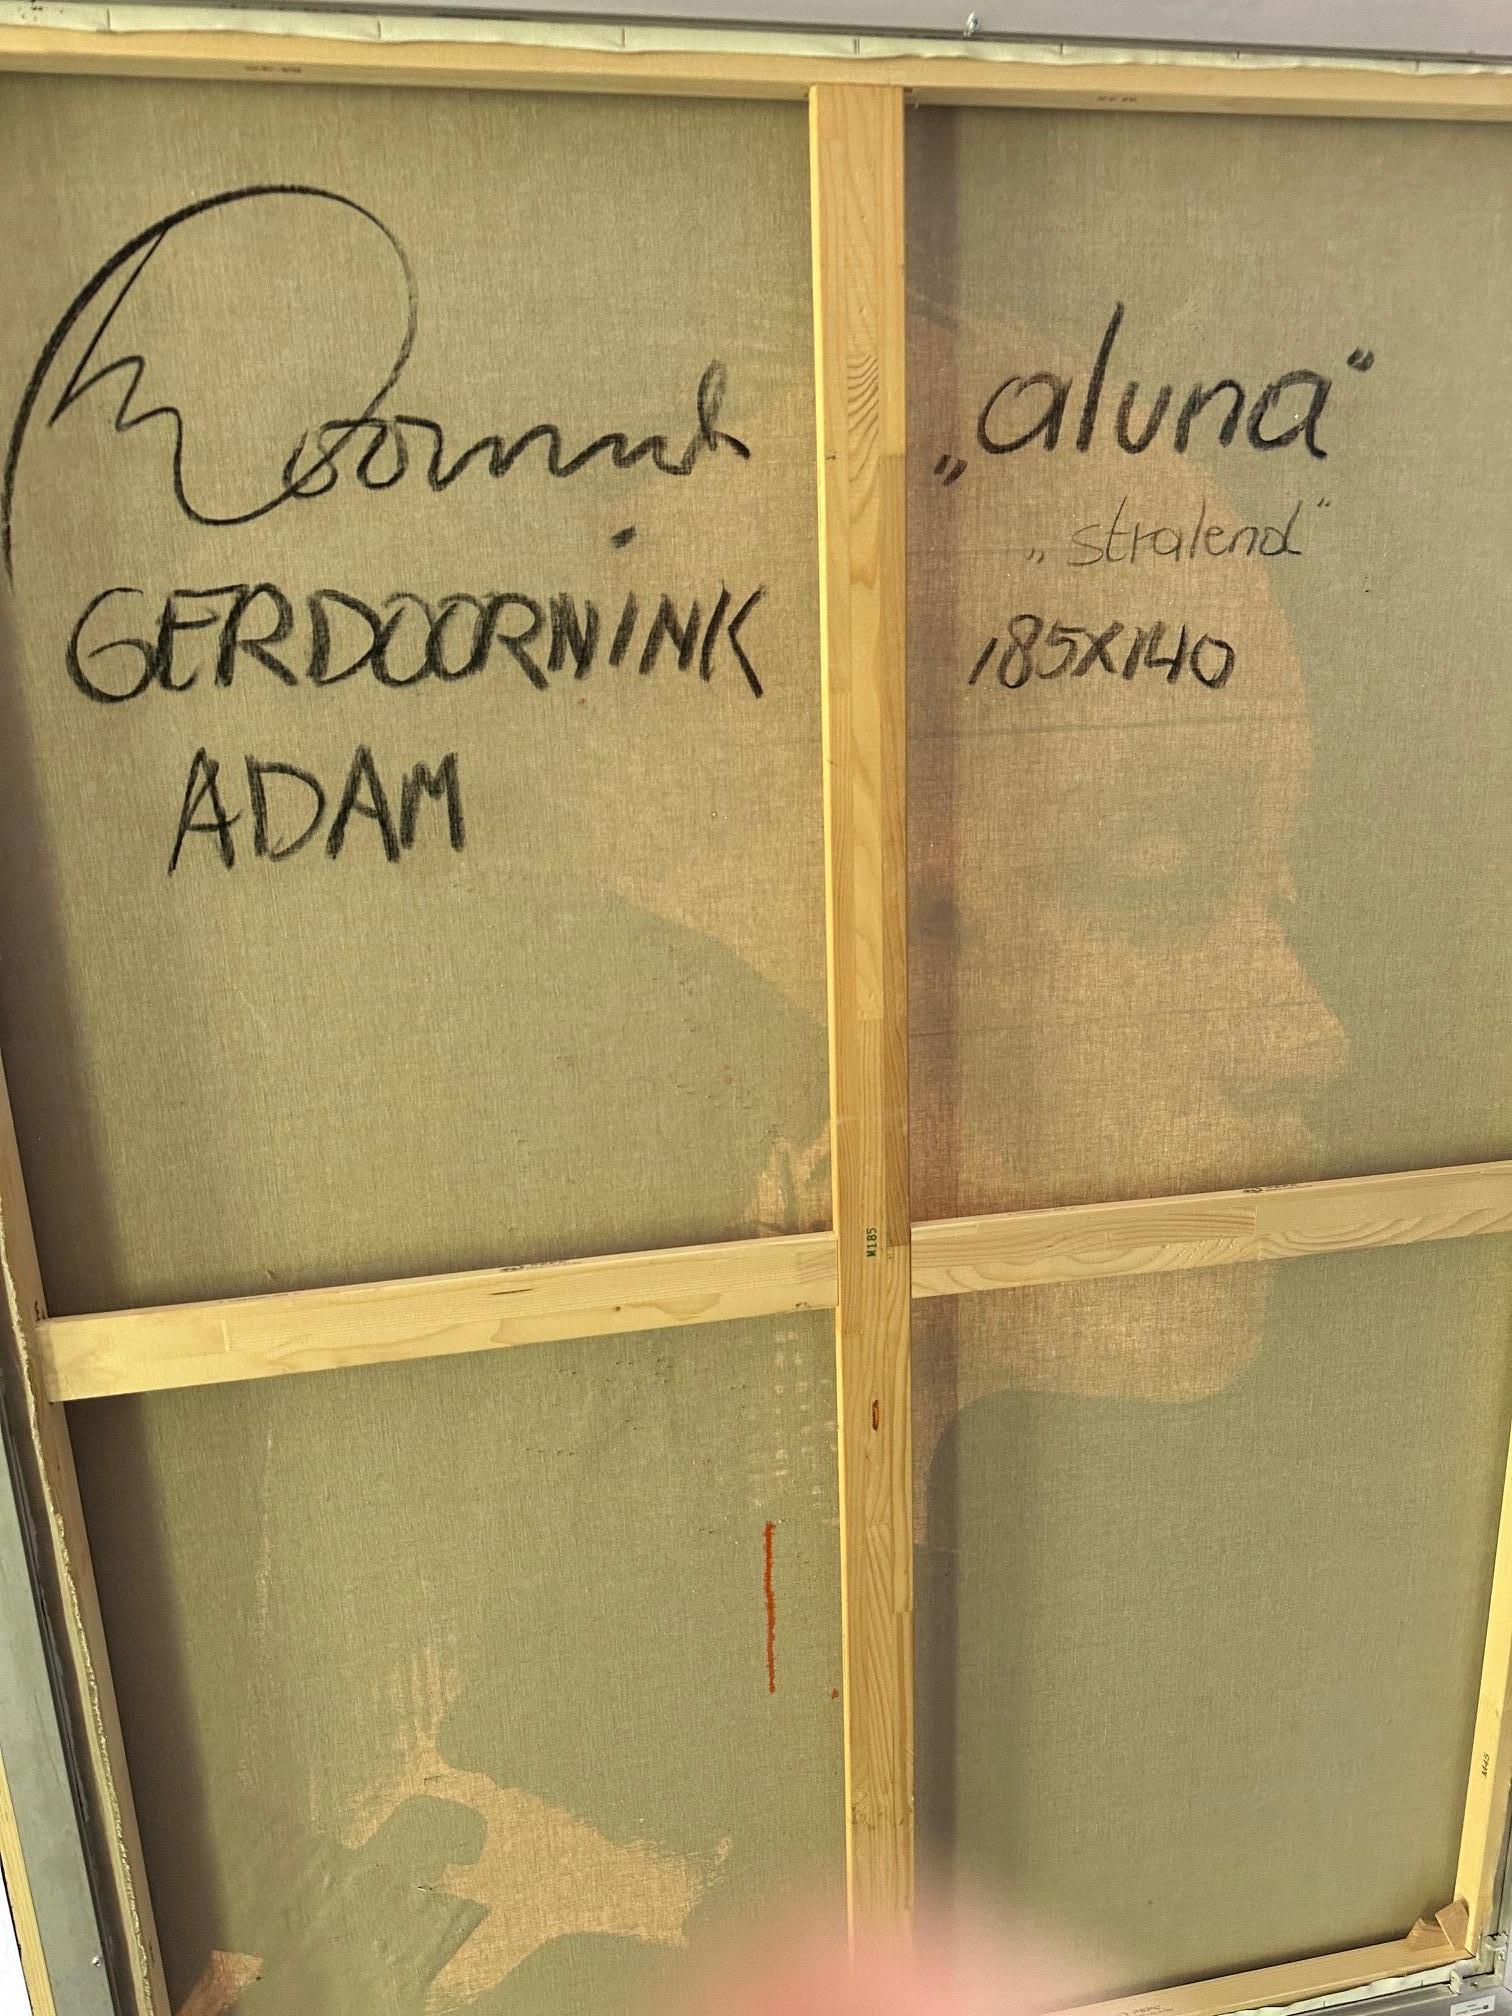 GERDOORNINK
ADAM
„aluna“
„stralend“
185X140
M185
M45